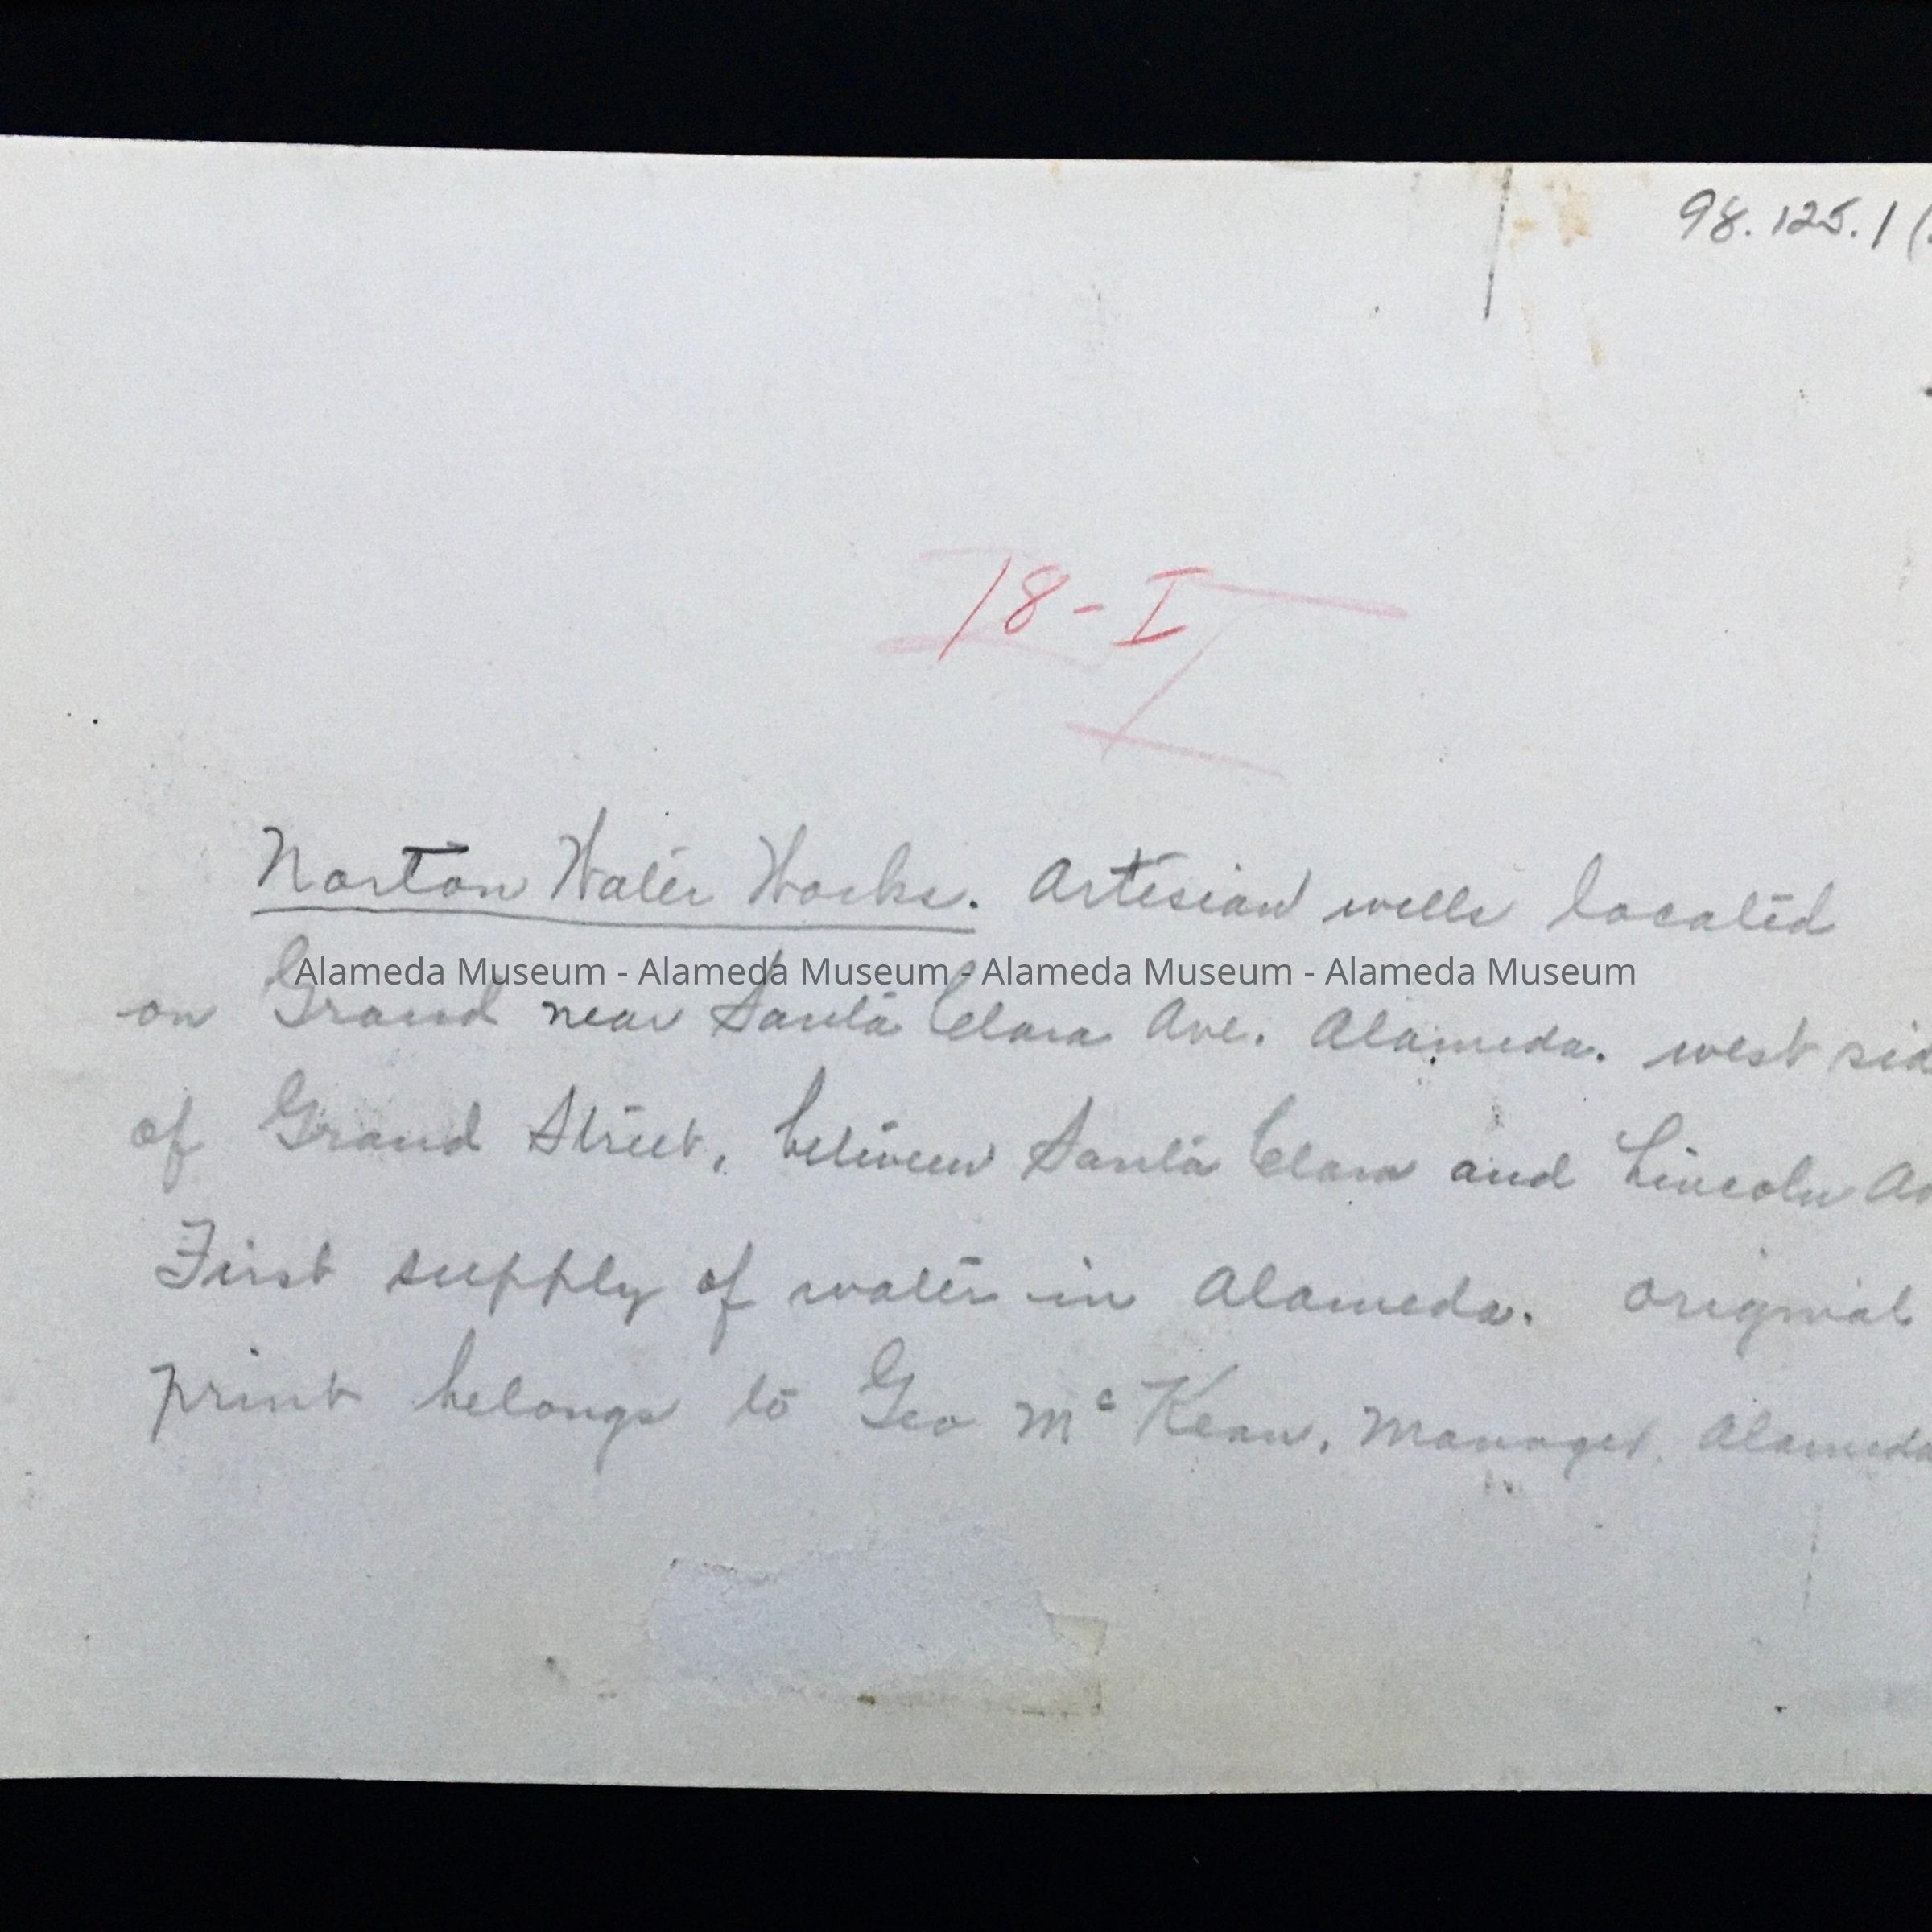 98.125.1 (
18-I
I
Norton Water Works. Artesian wells located
Alameda Museum - Alameda Museum - Alameda Museum - Alameda Museum
on Grand near Santa Clara Ave. Alameda. west sid
of Grand Street, between Santa Clara and Lincoln Av
First supply of water in Alameda. Original
print belongs to Geo McKean, Manager, Alameda